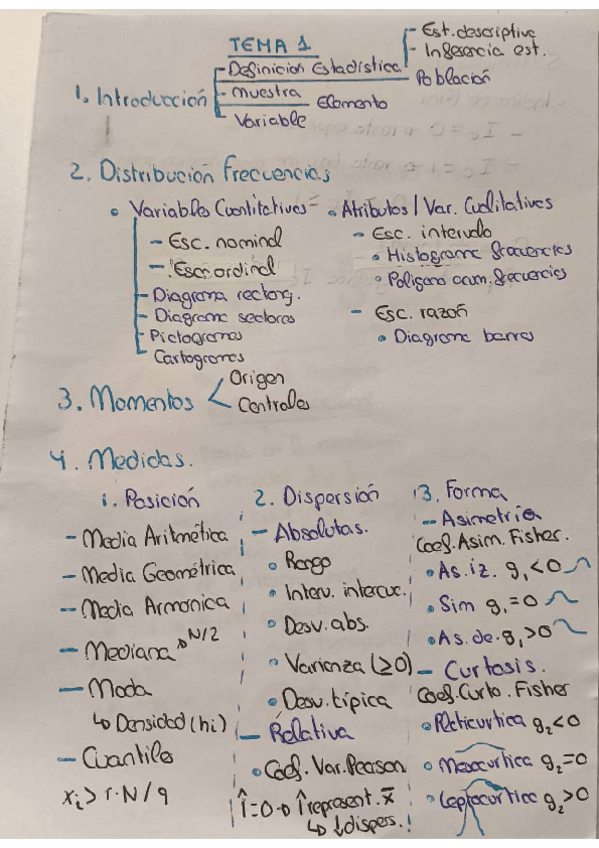 TEMA 1
- Est. descriptiva
- Inferencia est.
1. Introducción
- Definición Estadística
Población
- Muestra
Elemento
Variable
2. Distribución Frecuencias
• Variables Cuantitativas
- Esc. nominal
- Esc. ordinal
- Diagrama rectang.
- Diagrama sectores
- Pictogramas
Cartogramas
• Atributos / Var. Cualitativas
- Esc. intervalo
• Histograma frecuencias
• Polígono acum. frecuencias
- Esc. razón
• Diagrama barras
3. Momentos
Origen
Centrales
4. Medidas.
1. Posición
- Media Aritmética
- Media Geométrica
- Media Armonica
- Mediana → N/2
- Moda
↳ Densidad (hi)
- Cuantiles
xi > r·N/q
2. Dispersión
- Absolutas.
• Rango
• Interv. intercuc.
• Desv. abs.
• Varianza (≥0)
• Desv. típica
- Relativa
• Coef. Var. Pearson
↑=0 → ↑ represent. x̄
↳ ↓ dispers.!
3. Forma
- Asimetría
Coef. Asim. Fisher.
• As. iz. g₁<0
• Sim g₁=0
• As. de. g₁>0
- Curtosis.
Coef. Curto. Fisher
• Platicurtica g₂<0
• Mesocurtica g₂=0
• Leptocurtica g₂>0